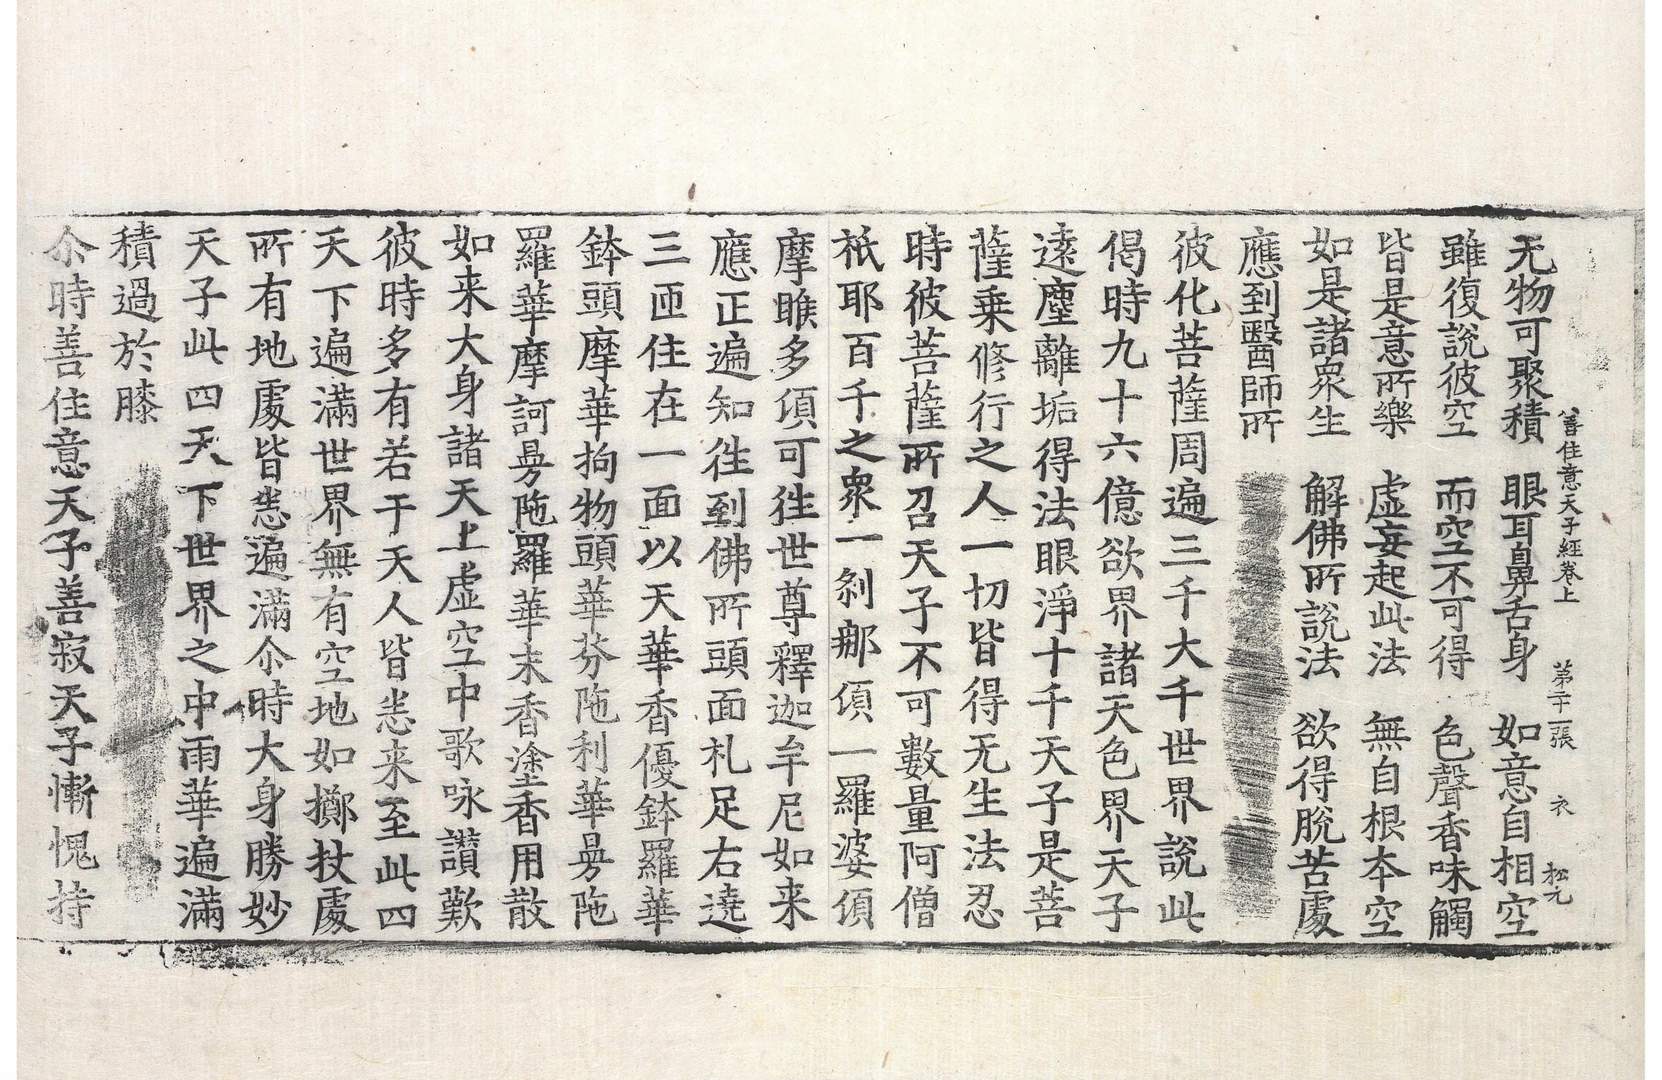 善住意天子經卷上 第二十二張 衣 松元
无物可聚積 眼耳鼻舌身 如意自相空
雖復說彼空 而空不可得 色聲香味觸
皆是意所樂 虛妄起此法 無自根本空
如是諸衆生 解佛所說法 欲得脫苦處
應到醫師所
彼化菩薩周遍三千大千世界說此
偈時九十六億欲界諸天色界天子
遠塵離垢得法眼淨十千天子是菩
薩乗修行之人一切皆得无生法忍
時彼菩薩所召天子不可數量阿僧
祇耶百千之衆一剎𨙻傾一羅婆傾
摩睺多傾可徃世尊釋迦牟尼如来
應正遍知徃到佛所頭面礼足右遶
三匝住在一面以天華香優鉢羅華
鉢頭摩華拘物頭華芬陁利華曼陁
羅華摩訶曼陁羅華末香塗香用散
如来大身諸天上虛空中歌咏讃歎
彼時多有若干天人皆悉来至此四
天下遍滿世界無有空地如擲杖處
所有地處皆悉遍滿尒時大身勝妙
天子此四天下世界之中雨華遍滿
積過於膝
尒時善住意天子善寂天子慚愧持